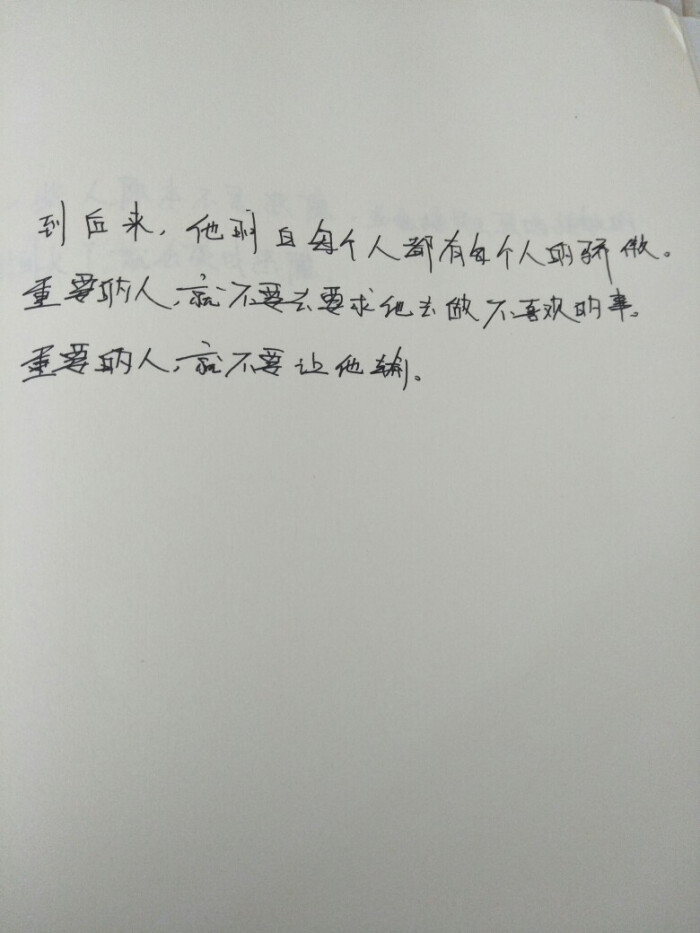 到后来，他明白每个人都有每个人的骄傲。
重要的人，就不要去要求他去做不喜欢的事。
重要的人，就不要让他输。